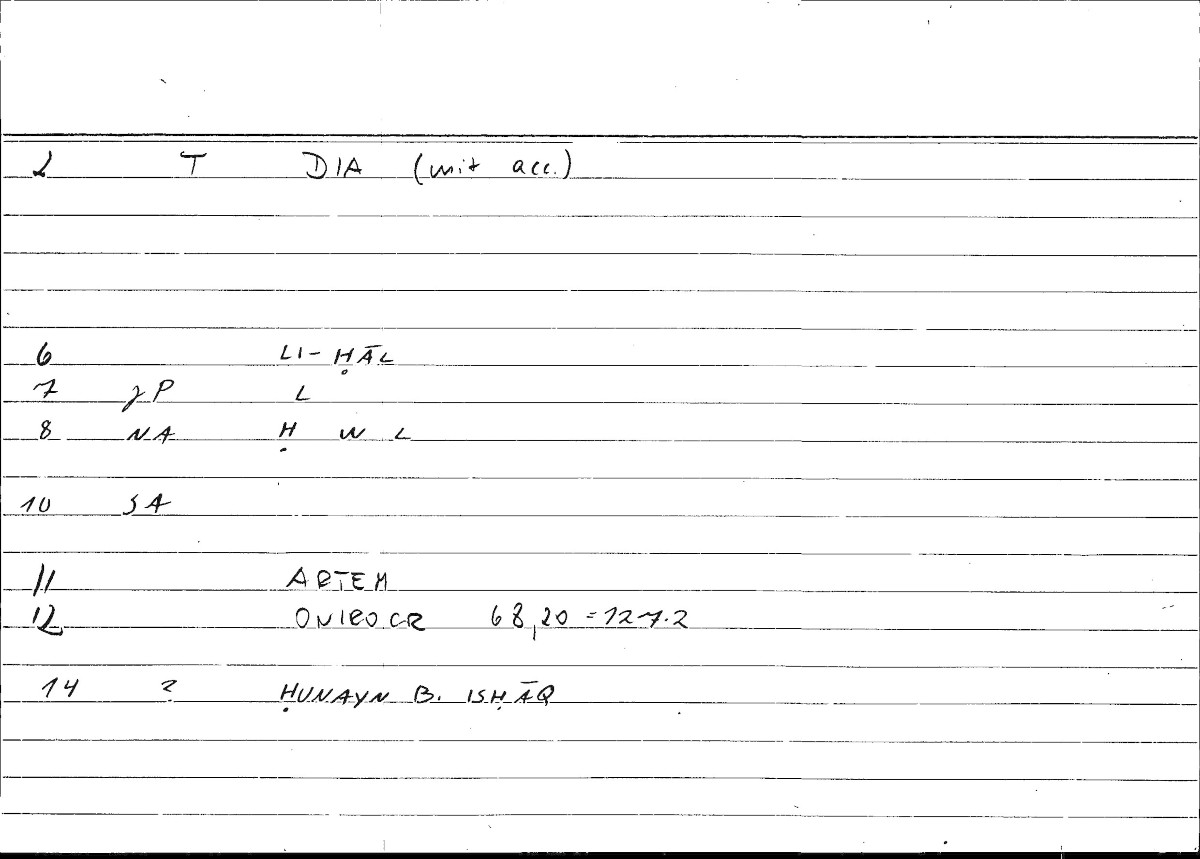 2 T DIA (mit acc.)
6 LI-ḤĀL
7 γP L
8 NA Ḥ W L
10 SA
11 ARTEM
12 ONIROCR 68,20 = 127.2
14 2 ḤUNAYN B. ISḤĀQ